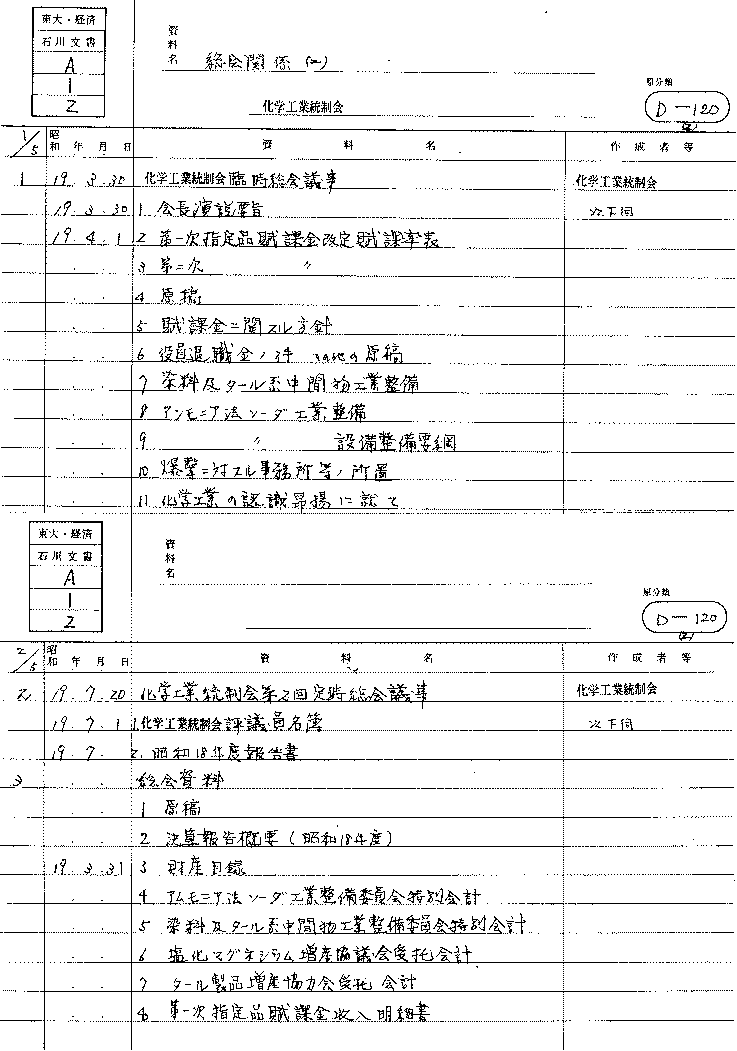 東大・経済
石川文書
A
1
2
資料名 総会関係(二)
化学工業統制会
原分類
D-120
(2)
1/5 昭和 年 月 日 資料名 作成者等
1 19.3.30 化学工業統制会臨時総会議事 化学工業統制会
19.3.30 1 会長演説要旨 以下同
19.4.1 2 第一次指定品賦課金改定賦課率表
3 第二次 〃
4 原稿
5 賦課金ニ関スル方針
6 役員退職金ノ件 その他の原稿
7 染料及タール系中間物工業整備
8 アンモニア法ソーダ工業整備
9 〃 設備整備要綱
10 爆撃ニ対スル事務所等ノ所置
11 化学工業の認識昂揚に就て
東大・経済
石川文書
A
1
2
資料名
原分類
D-120
(2)
2/5 昭和 年 月 日 資料名 作成者等
2 19.7.20 化学工業統制会第2回定時総会議事 化学工業統制会
19.7.1 1.化学工業統制会評議員名簿 以下同
19.7. 2. 昭和18年度報告書
3 総会資料
1 原稿
2 決算報告概要(昭和18年度)
19.3.31 3 財産目録
4 アムモニア法ソーダ工業整備委員会特別会計
5 染料及タール系中間物工業整備委員会特別会計
6 塩化マグネシウム増産協議会受托会計
7 タール製品増産協力会受托会計
8 第一次指定品賦課金収入明細書